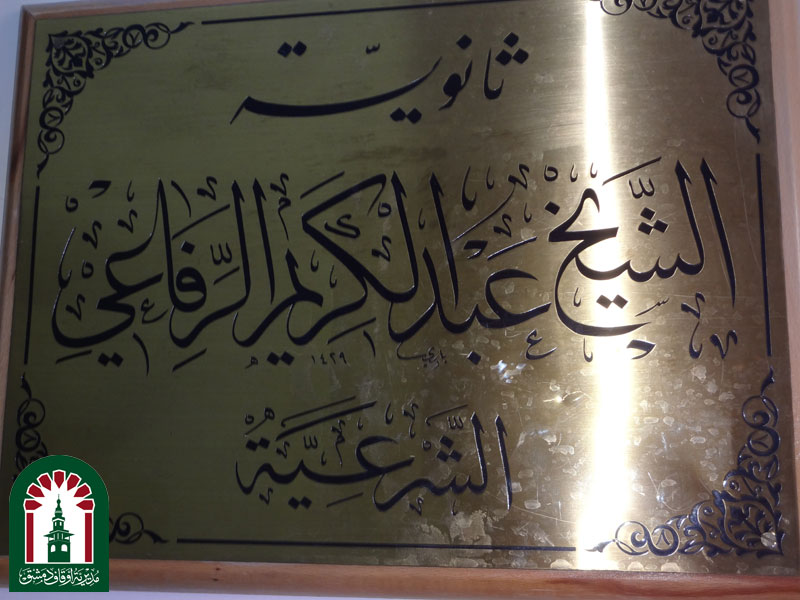 ثانويّة
الشَّيْخ عَبْد الكَرِيْم الرِّفَاعِيْ
١٤٢٩ هـ
الشَّرْعِيَّةُ
مديرية أوقاف دمشق